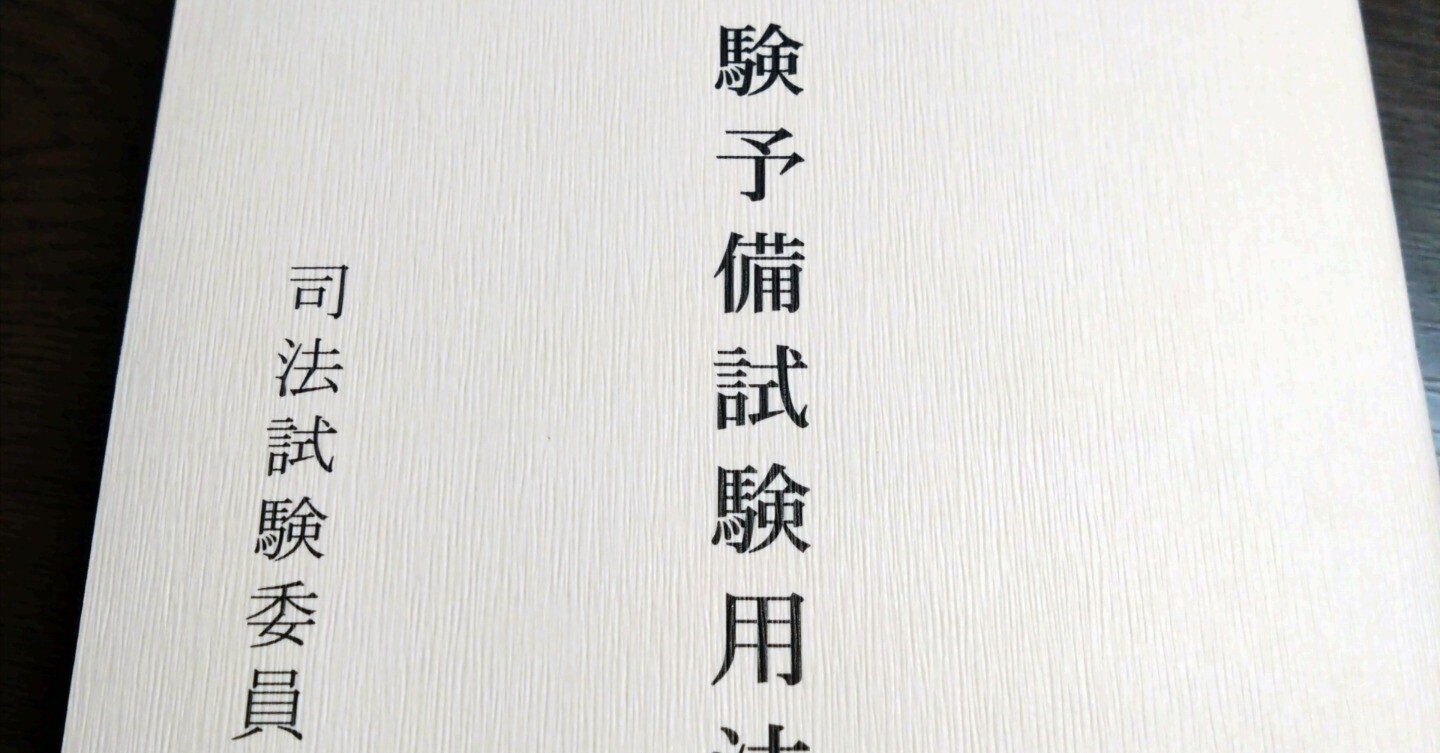 験予備試験用法
司法試験委員